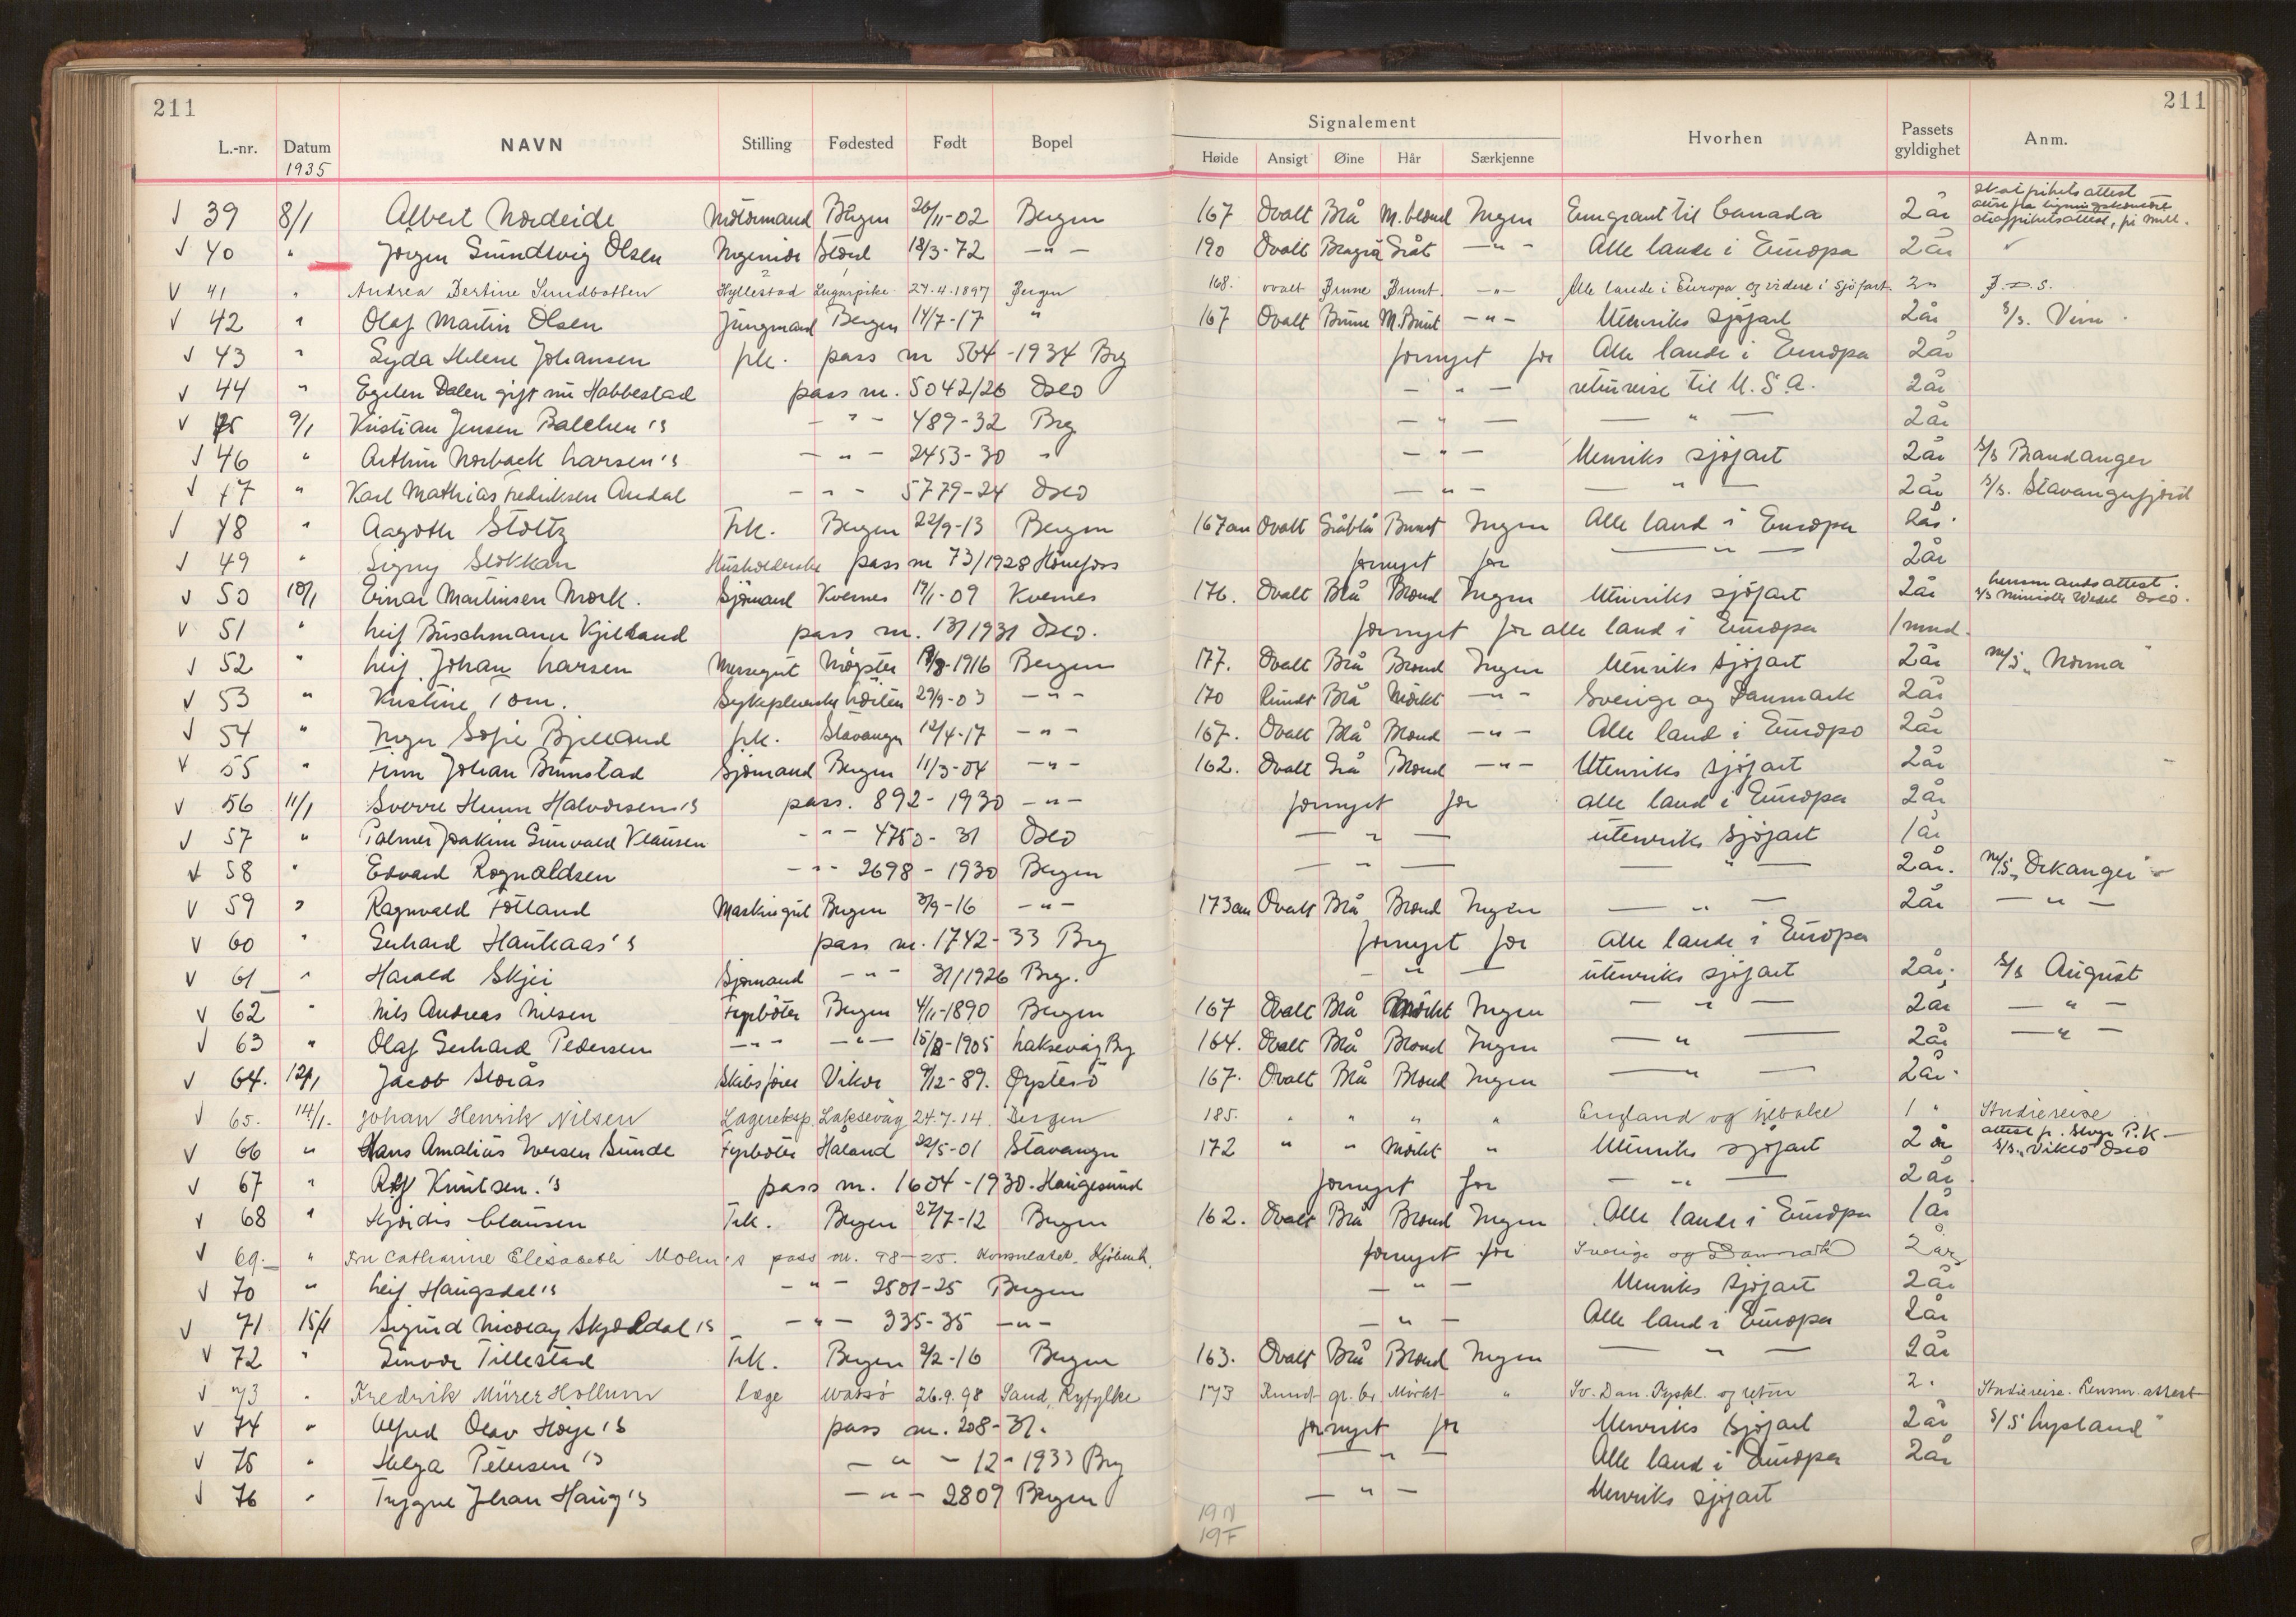 211
211
Signalement
L.-nr. Datum NAVN Stilling Fødested Født Bopel Høide Ansigt Øine Hår Særkjenne Hvorhen Passets gyldighet Anm.
1935
39 8/1 Albert Nordeide Motormand Bergen 26/11-02 Bergen 167 Ovalt Blå M. blond Ingen Emigrant til Canada 2 år
40 " Jørgen Grundtvig Olsen Ingeniør Stord 18/3-72 -"- 190 Ovalt Blågrå Gråt -"- Alle lande i Europa 2 år
41 " Andrea Bertine Sundbotten Hyllestad Lugarpike 27.4.1897 Bergen 168. ovalt Brune Brunt. -"- Alle lande i Europa og videre i sjøfart 2 " B.D.S.
42 " Olaf Martin Olsen Jungmand Bergen 14/7-17 " 167 Ovalt Brune M. Brunt -"- Utenriks sjøfart 2 år S/S.
43 " Lyda Helene Johansen frk. pass nr 564-1934 Brg fornyet for Alle lande i Europa 2 år
44 " Dalen gift nu Habbestad pass nr. 5042/26 Oslo -"- returreise til U.S.A. 2 år
45 9/1 Kristian Jensen Balchen's -"- 489-32 Brg -"- -"- 2 år
46 " Arthur Norback Larsen's -"- 2453-30 " -"- Utenriks sjøfart 2 år S/S Brandanger
47 " Karl Mathias Fredriksen Andal -"- 5779-24 Oslo -"- -"- 2 år S/S. Stavangerfjord
48 " Aagoth Stoltz Frk. Bergen 22/9-13 Bergen 167 cm Ovalt Gråblå Brunt Ingen Alle land i Europa 2 år.
49 " Signy Stokkan Husholderske pass nr 73/1928 Hønefoss fornyet for -"- 2 år
50 10/1 Einar Martinsen Mork. Sjømand Kvernes 17/1-09 Kvernes 176. Ovalt Blå Blond Ingen Utenriks sjøfart 2 år Lensmandsattest. S/S Minister Wedel Oslo.
51 " Leif Buschmann Kjelland pass nr. 13/1931 Oslo. fornyet for alle land i Europa 1 mnd.
52 " Leif Johan Larsen Messegut Møgster 1916 Bergen 177. Ovalt Blå Blond Ingen Utenriks sjøfart 2 år M/S "Norma"
53 " Kristine Tom. Sykepleierske 29/9-03 -"- 170 Rundt Blå Mørkt -"- Sverige og Danmark 2 år
54 " Inger Sofie Bjelland frk. Stavanger 12/4-17 -"- 167. Ovalt Blå Blond -"- Alle land i Europa 2 år
55 " Finn Johan Brunstad Sjømand Bergen 11/3-04 -"- 162. Ovalt Grå Blond -"- Utenriks sjøfart 2 år
56 11/1 Sverre Halvorsen's pass. 892-1930 -"- fornyet for alle land i Europa 2 år
57 " Palmer Joakim Gunvald Klausen -"- 4750-31 Oslo -"- utenriks sjøfart 1 år
58 " Edvard Rognaldsen -"- 2698-1930 Bergen -"- -"- 2 år. M/S "Orkanger"
59 " Ragnvald Totland Maskingut Bergen 3/9-16 -"- 173 cm Ovalt Blå Blond Ingen -"- 2 år -"-
60 " Gerhard Hauhaas's pass nr. 1742-33 Brg fornyet for Alle lande i Europa
61 " Harald Skjei Sjømand -"- 31/1926 Brg. -"- utenriks sjøfart 2 år. S/S August
62 " Nils Andreas Nilsen Fyrbøter Bergen 4/11-1890 Bergen 167 Ovalt Blå Mørkt Ingen -"- 2 år -"-
63 " Olaf Gerhard Pedersen -"- -"- 15/8-1905 Laksevåg Brg 164. Ovalt Blå Blond Ingen -"- 2 år -"-
64. 12/1 Jacob Storås Skibsfører Vikør 9/12-89. Øystesö 167. Ovalt Blå Blond Ingen -"- 2 år.
65. 14/1. Johan Henrik Nilsen Lagereksp. Laksevåg 24.7.14. Bergen 185. " " " " England og tilbake 1 " Studiereise
66 " Hans Amalius Iversen Sunde Fyrbøter Håland 22/5-01 Stavanger 172 " " Mørkt " Utenriks sjøfart 2 år attest fr. Stvgr P.K. S/S. "Vikeo" Oslo
67 " Rolf Knutsen.'s pass nr. 1604-1930-Haugesund fornyet for -"- 2 år
68 " Hjørdis Clausen Frk. Bergen 27/7-12 Bergen 162. Ovalt Blå Blond Ingen Alle lande i Europa 1 år
69. " Fru Cathrine Elisabeth Mohn's pass nr. 98-25. Konsulatet. Kjøbenh. fornyet for Sverige og Danmark 2 år
70 " Leif Haugsdal's -"- 2501-25 Bergen -"- Utenriks sjøfart 2 år
71 15/1 Sigurd Nicolay Skjoldal's -"- 335-35 -"- -"- Alle land i Europa 2 år
72 " Gunvor Tillestad Frk. Bergen 2/2-16 Bergen 163. Ovalt Blå Blond Ingen -"- 2 år
73 " Fredrik Mürer Hollum læge Vadsø 26.9.98 Sand, Ryfylke 173 Rundt gr. bl. Mørkt " Sv. Dan. Tyskl. og retur 2 " Studiereise. Lensm. attest
74 " Alfred Olav Høye's pass nr. 208-31. fornyet for Utenriks sjøfart 2 år S/S "Lysland"
75 " Helga Petersen's -"- 12-1933 Brg -"- Alle land i Europa 2 år
76 " Trygve Johan Haug's -"- 2809 Bergen -"- Utenriks sjøfart
19 N
19 F